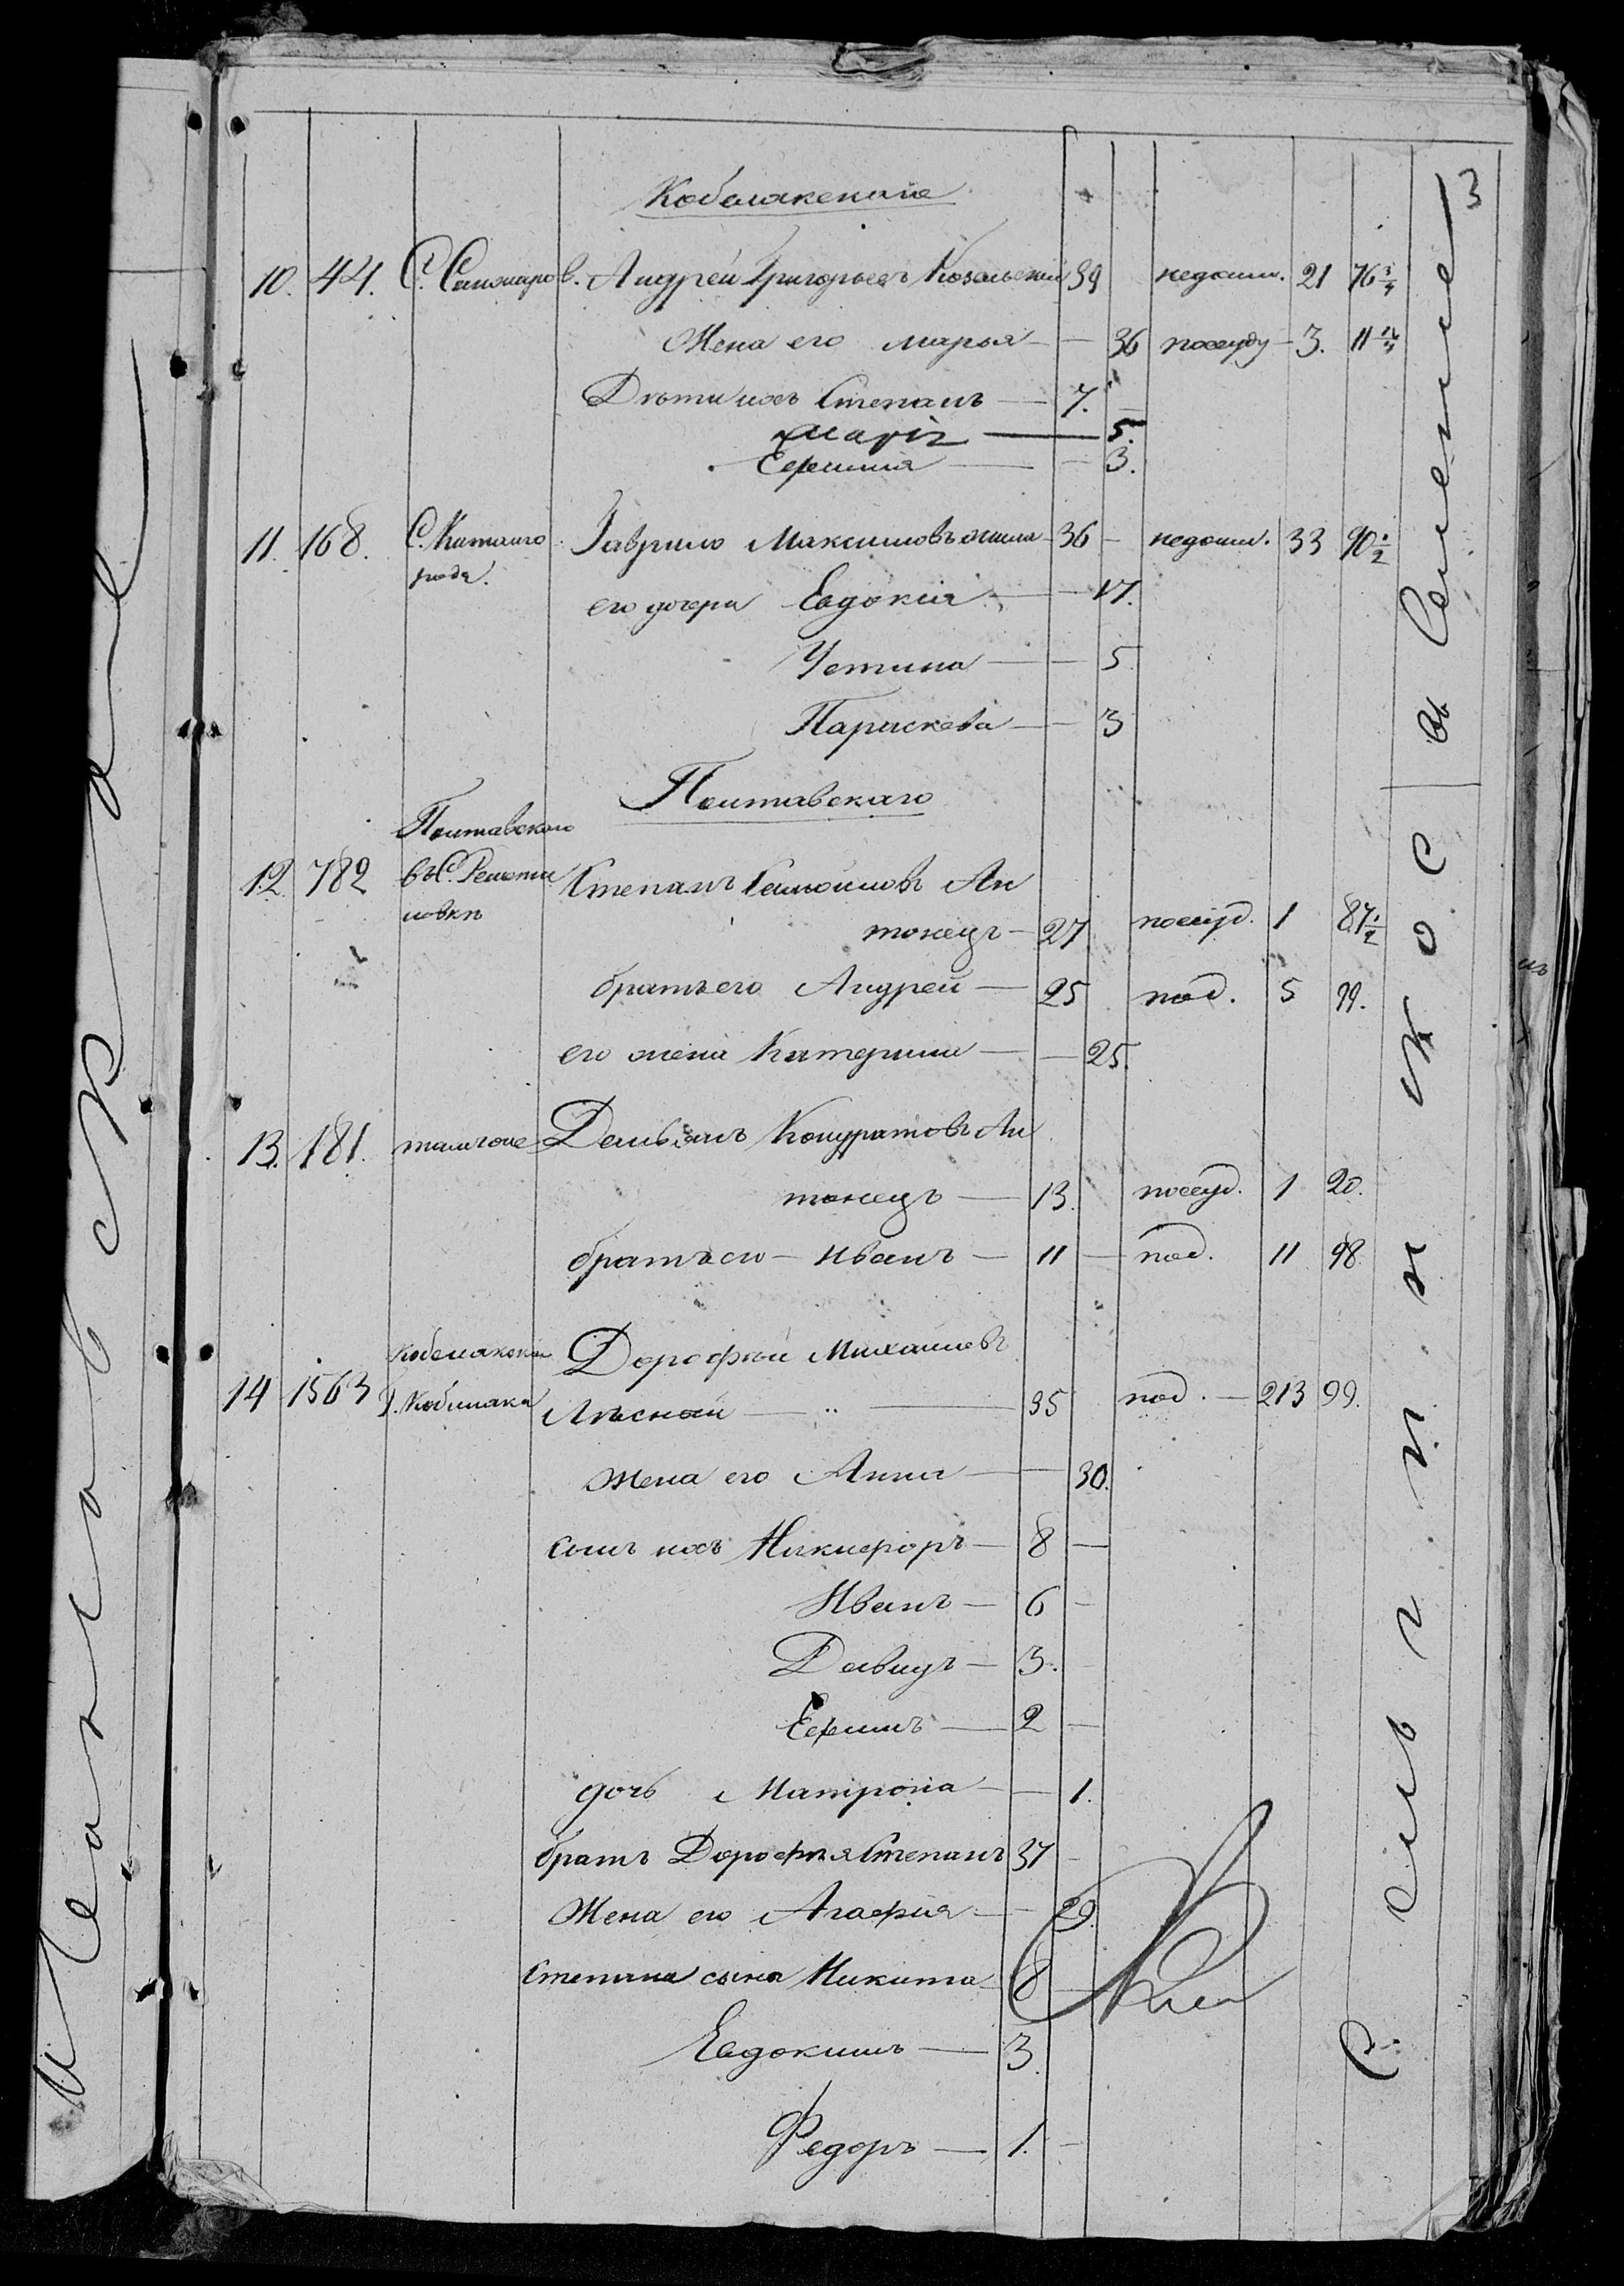 3
Кобелякского
10. 44. С. Санжаров. Андрей Григорьевъ Козельский 39 недоим. 21 76 3/4
Жена его Марья — — 36 посуду — 3. 11
Дети ихъ Степанъ — 7. —
Марія — 5.
Ефимия — — 3.
11. 168. С. Китайго Гаврило Максимовъ жила 36 — недоим. 33 90 1/2
рода.
его дочери Евдокия — — 17.
Устина — — 5
Параскева — — 3
Полтавскаго
Полтавского
12 782 въ С. Решети Степанъ Самойловъ Ан
ловки
тонецъ — 27 посуд. 1 87 1/2
братъ его Андрей — 25 под. 5 99.
его жена Катерина — — 25.
13. 181. тамъ же Демьянъ Кондратовъ Ан
тонецъ — 13. посуд. 1 20.
братъ его — Иванъ — 11 — под. 11 98.
Кобелякски Дорофей Михайловъ
14 1563 Кобеляка Лесной — " — 35 под. — 213 99.
Жена его Анна — — 30.
сынъ ихъ Никифоръ — 8 —
Иванъ — 6 —
Давидъ — 3. —
Ефимъ — 2 —
дочь Матрона — — 1.
братъ Дорофея Степанъ 37 —
Жена его Агафия — — 29.
Степана сына Никита 8 —
Евдокимъ — 3.
Федоръ — 1. —